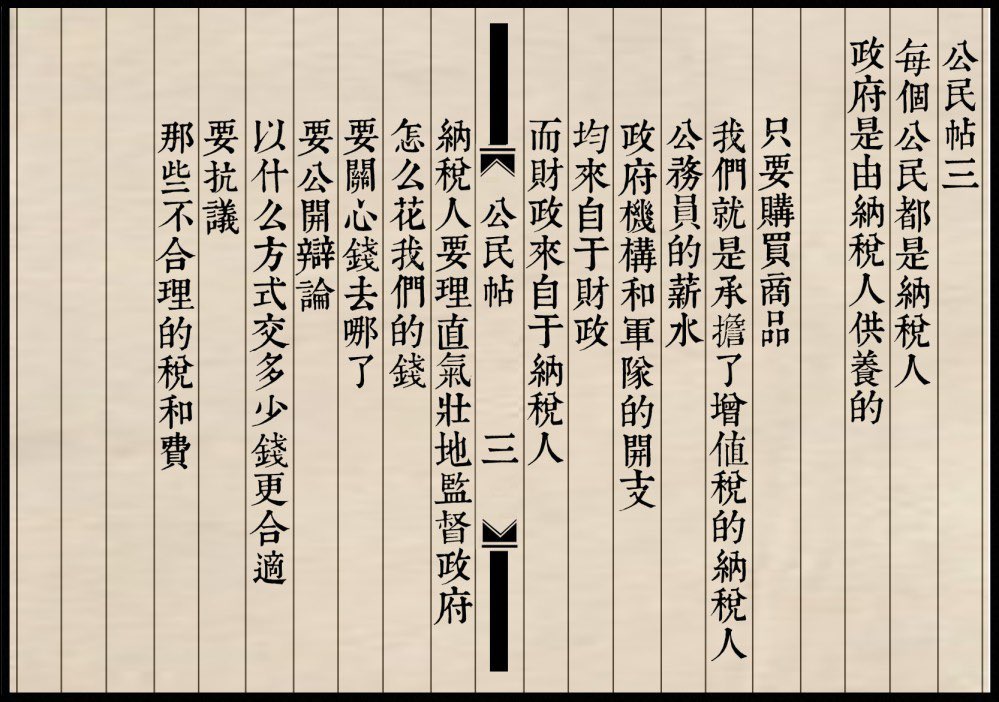 公民帖三
每個公民都是納稅人
政府是由納稅人供養的
只要購買商品
我們就是承擔了增值稅的納稅人
公務員的薪水
政府機構和軍隊的開支
均來自于財政
而財政來自于納稅人
公民帖 三
納稅人要理直氣壯地監督政府
怎么花我們的錢
要關心錢去哪了
要公開辯論
以什么方式交多少錢更合適
要抗議
那些不合理的稅和費